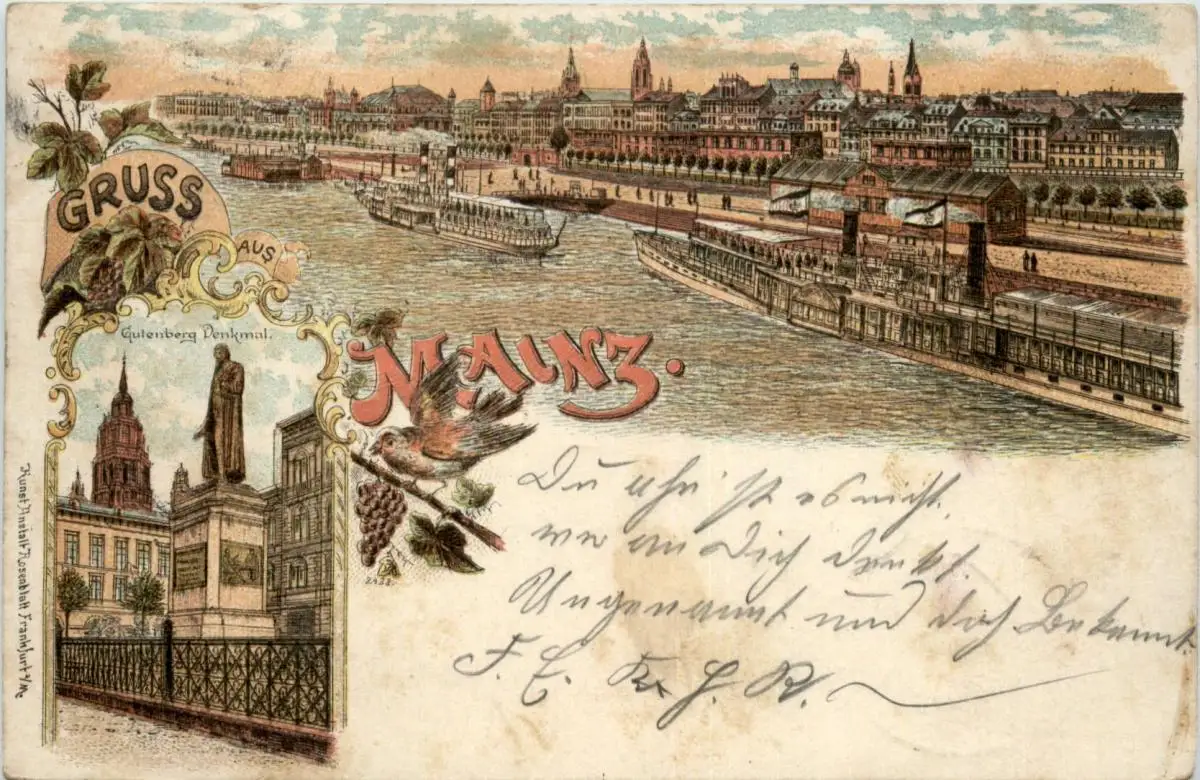 GRUSS
AUS
MAINZ.
Gutenberg Denkmal.
Du ahn'st es nicht,
wer an Dich denkt.
Ungenannt und doch Bekannt.
F. E. G. R.
Kunst Anstalt Rosenblatt Frankfurt a/M.